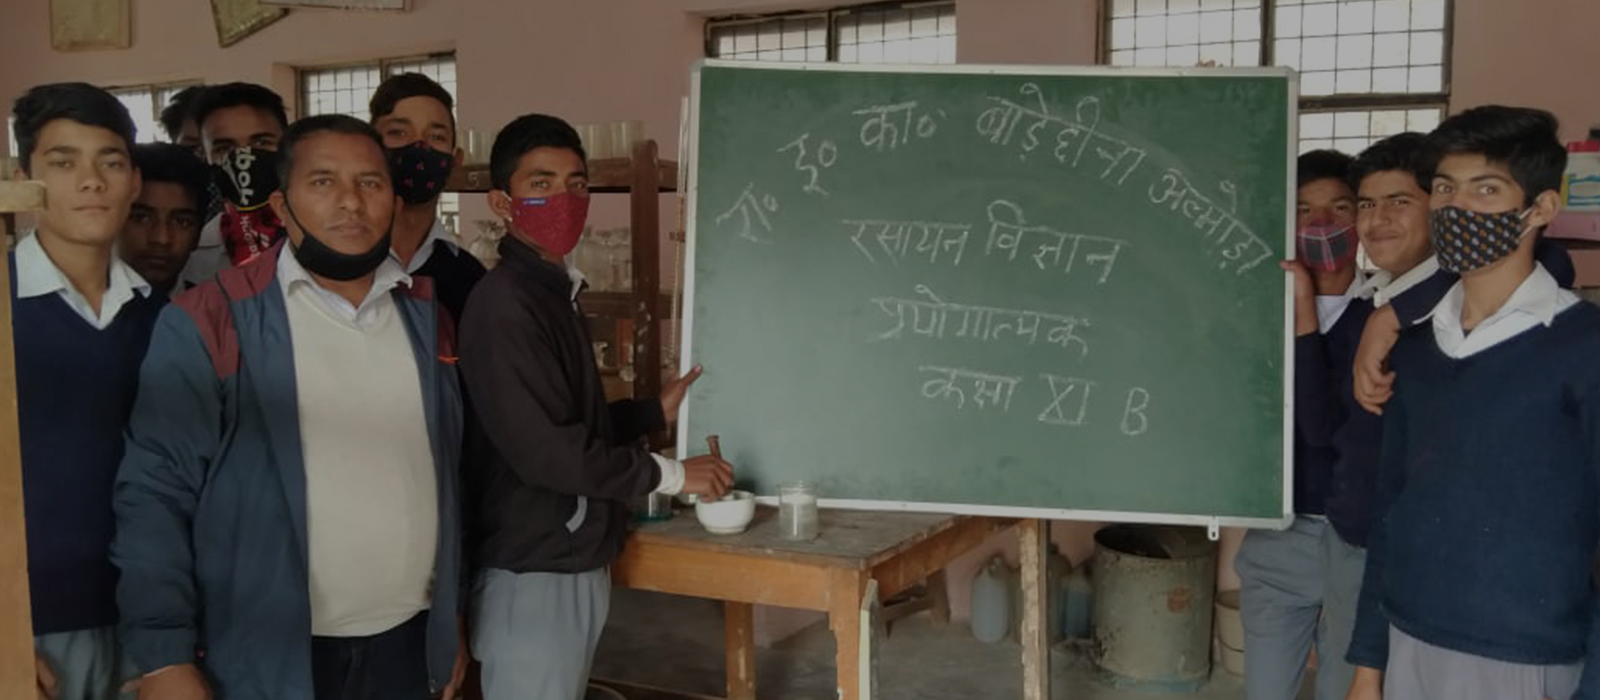 रा० इ० का० बाड़ेछीना अल्मोड़ा
रसायन विज्ञान
प्रयोगात्मक
कक्षा XI B